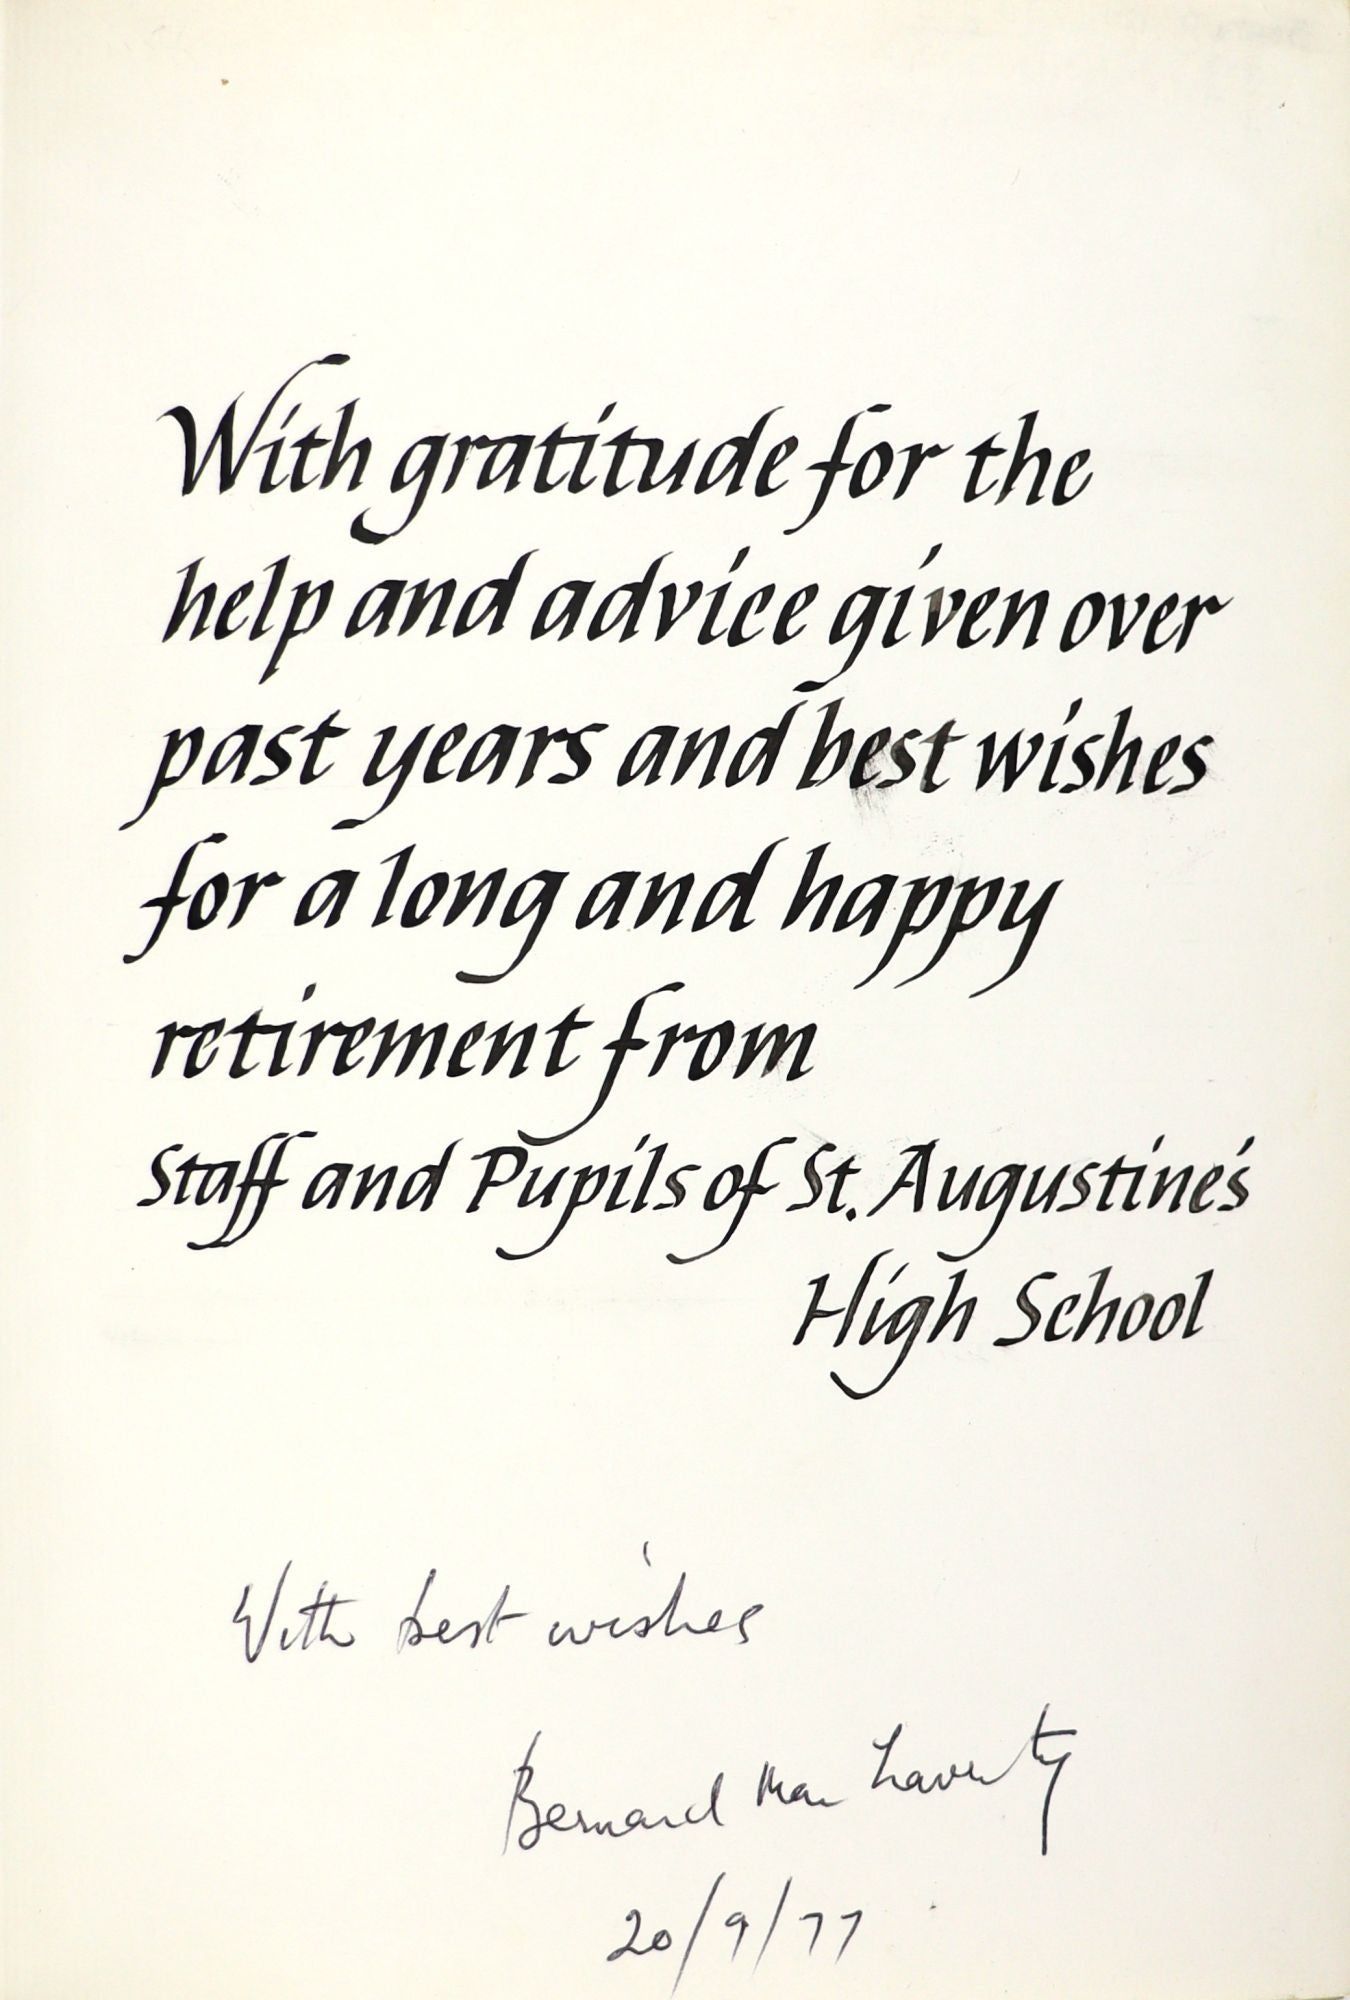 With gratitude for the
help and advice given over
past years and best wishes
for a long and happy
retirement from
Staff and Pupils of St. Augustine's
High School
With best wishes
Bernard Mac Laverty
20/9/77